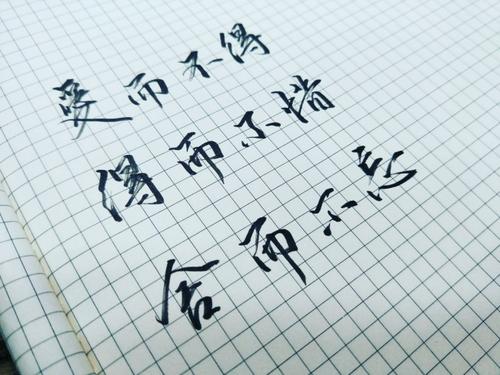 爱而不得
得而不惜
舍而不